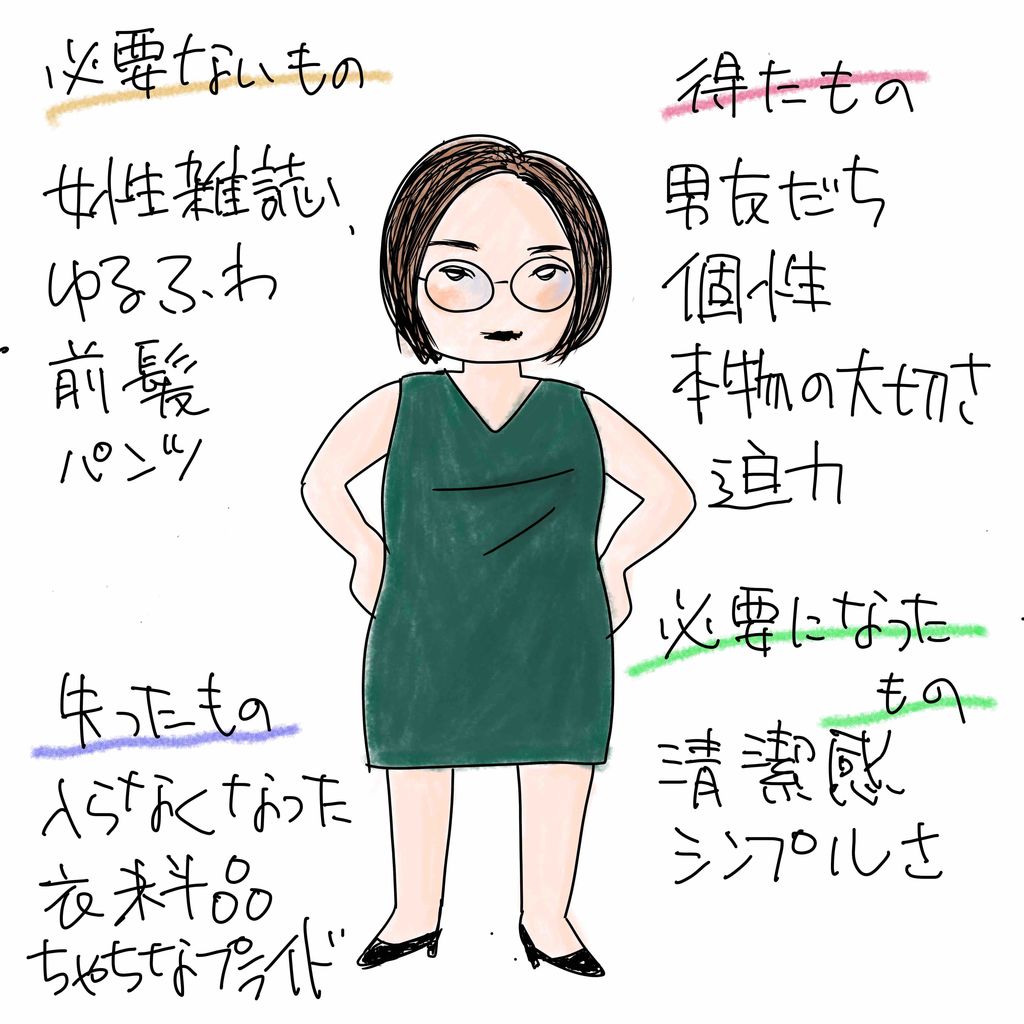 必要ないもの
女性雑誌、
ゆるふわ
前髪
パンツ
失ったもの
入らなくなった
衣料品
ちゃちなプライド
得たもの
男友だち
個性
本物の大切さ
迫力
必要になった
もの
清潔感
シンプルさ